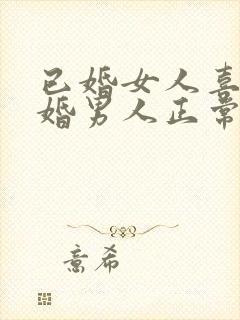 已婚女人喜
婚男人正常
意希